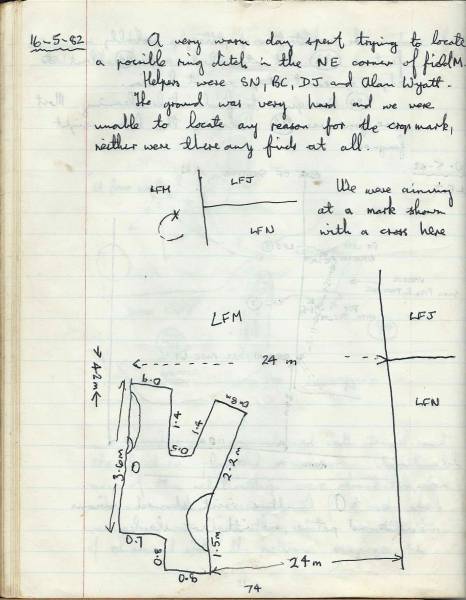 16-5-82 A very warm day spent trying to locate
a possible ring ditch in the NE corner of field M.
Helpers were SN, BC, DJ and Alan Wyatt.
The ground was very hard and we were
unable to locate any reason for the crop mark,
neither were there any finds at all.
LFM LFJ
X
LFN
We were aiming
at a mark shown
with a cross here
LFM
LFJ
24 m
24m
LFN
0.9
1.4
1.4
0.8m
3.6m
2.2m
0.7
0.8
0.8
1.5m
24m
74